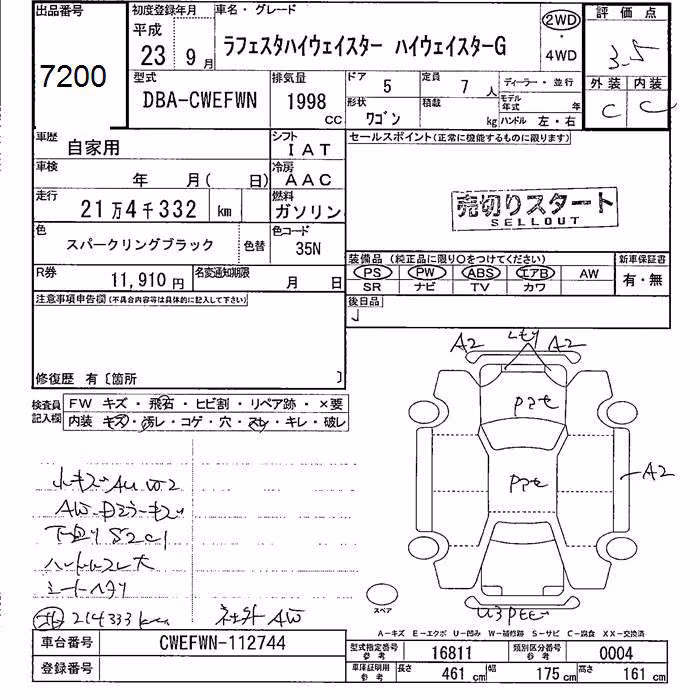 出品番号
7200
初度登録年月
平成
23年9月
車名・グレード
ラフェスタハイウェイスター ハイウェイスターG
2WD
・
4WD
評価点
3.5
型式
DBA-CWEFWN
排気量
1998
CC
ドア
5
定員
7人
ディーラー・並行
外装 内装
C C
形状
ワゴン
積載
kg
モデル年式 年
ハンドル 左・右
車歴
自家用
シフト
IAT
セールスポイント(正常に機能するものに限ります)
車検
年 月( 日)
冷房
AAC
走行
21万4千332 km
燃料
ガソリン
売切りスタート
SELLOUT
色
スパークリングブラック
色替
色コード
35N
装備品 (純正品に限り○をつけてください)
新車保証書
PS PW ABS エアB AW
有・無
SR ナビ TV カワ
R券
11,910円
名変通知期限
月 日
後日品
注意事項申告欄(不具合内容等は具体的に記入して下さい)
修復歴 有〔箇所 〕
検査員記入欄
FW キズ・飛石・ヒビ割・リペア跡・×要
内装 キズ・汚レ・コゲ・穴・スレ・キレ・破レ
A2
A2
A2
小キズAU W2
下回りS2C1
ハンドルスレ大
シートヘタリ
214333km
社外AW
U3
スペア
A-キズ E-エクボ U-凹み W-補修跡 S-サビ C-腐食 XX-交換済
車台番号
CWEFWN-112744
登録番号
型式指定番号
参考
16811
類別区分番号
参考
0004
車庫証明用
参考
長さ 461cm
幅 175cm
高さ 161cm